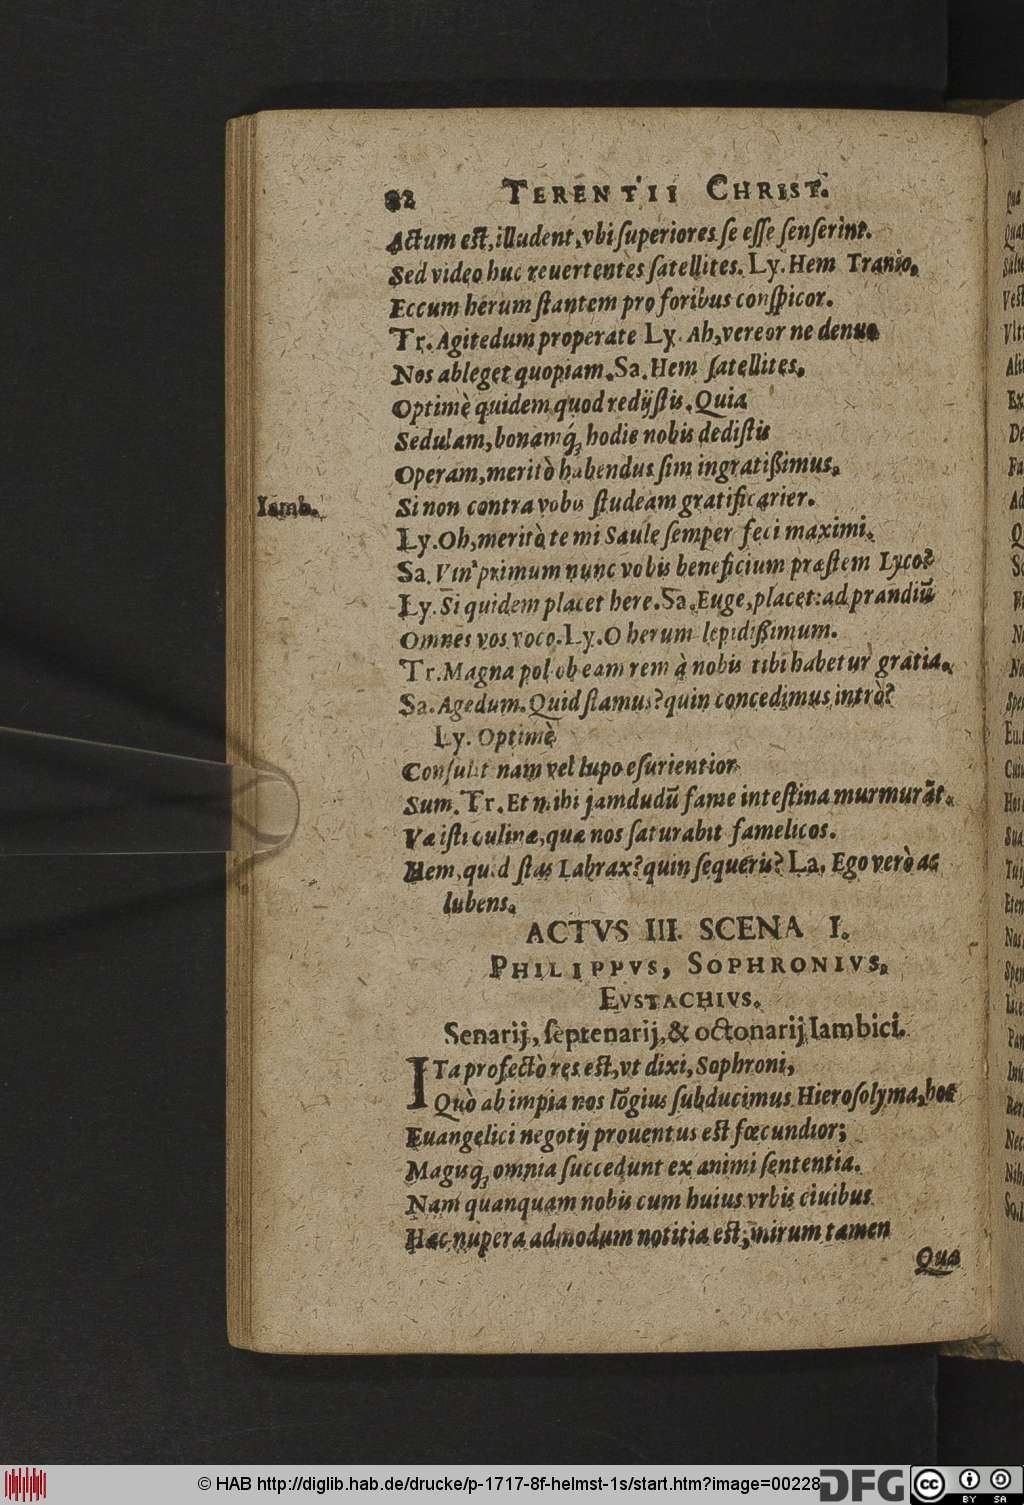 82 TERENTII CHRIST.
Actum est, illudent, vbi superiores se esse senserint.
Sed video huc reuertentes satellites. Ly. Hem Tranio,
Eccum herum stantem pro foribus conspicor.
Tr. Agitedum properate Ly. Ah, vereor ne denuo
Nos ableget quopiam. Sa. Hem satellites,
Optimè quidem quod redijstis. Quia
Sedulam, bonamq́; hodie nobis dedistis
Operam, meritò habendus sim ingratißimus,
Iamb.
Si non contra vobis studeam gratificarier.
Ly. Oh, meritò te mi Saule semper feci maximi.
Sa. Vin' primum nunc vobis beneficium præstem Lyco?
Ly. Si quidem placet here. Sa. Euge, placet: ad prandiū
Omnes vos voco. Ly. O herum lepidißimum.
Tr. Magna pol ob eam rem à nobis tibi habetur gratia.
Sa. Agedum. Quid stamus? quin concedimus intrò?
Ly. Optimè
Consulit nam vel lupo esurientior
Sum. Tr. Et mihi jamdudū fame intestina murmurāt.
Væ isti culinæ, quæ nos saturabit famelicos.
Hem, quid stas Labrax? quin sequeris? La. Ego verò ac
lubens.
ACTVS III. SCENA I.
PHILIPPVS, SOPHRONIVS,
EVSTACHIVS.
Senarij, septenarij, & octonarij Iambici.
ITa profectò res est, vt dixi, Sophroni,
Quò ab impia nos lōgius subducimus Hierosolyma, hoc
Euangelici negotij prouentus est fœcundior;
Magisq́; omnia succedunt ex animi sententia.
Nam quanquam nobis cum huius vrbis ciuibus
Hac nupera admodum notitia est; mirum tamen
Qua
© HAB http://diglib.hab.de/drucke/p-1717-8f-helmst-1s/start.htm?image=00228
DFG
cc BY SA